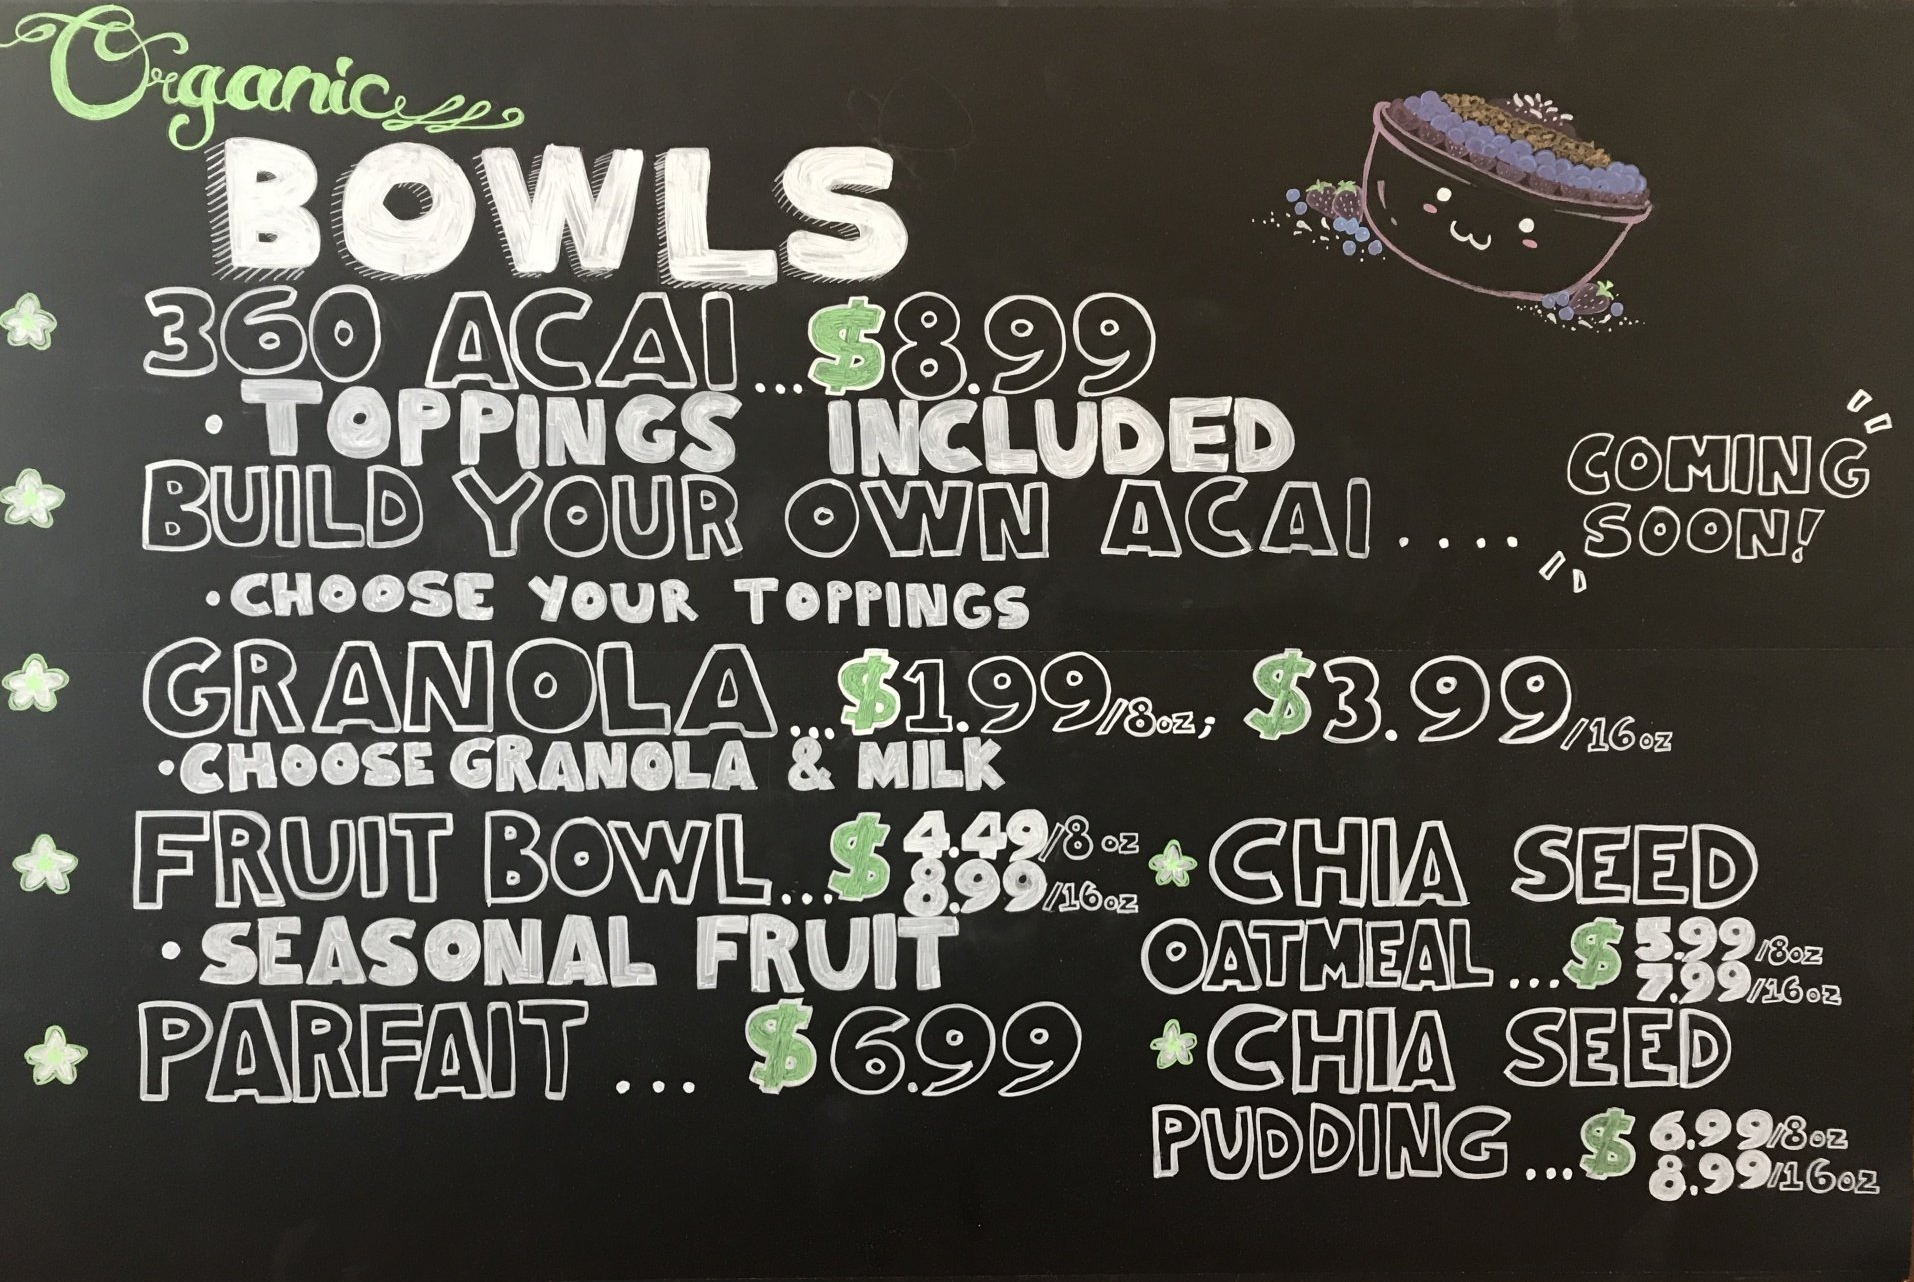 Organic
BOWLS
360 ACAI ...$8.99
• TOPPINGS INCLUDED
BUILD YOUR OWN ACAI ....
COMING
SOON!
• CHOOSE YOUR TOPPINGS
GRANOLA ...$1.99/8oz; $3.99/16oz
• CHOOSE GRANOLA & MILK
FRUIT BOWL...$ 4.49/8 oz
8.99/16oz
• SEASONAL FRUIT
PARFAIT ... $6.99
CHIA SEED
OATMEAL ...$ 5.99/8oz
7.99/16oz
CHIA SEED
PUDDING ...$ 6.99/8oz
8.99/16oz